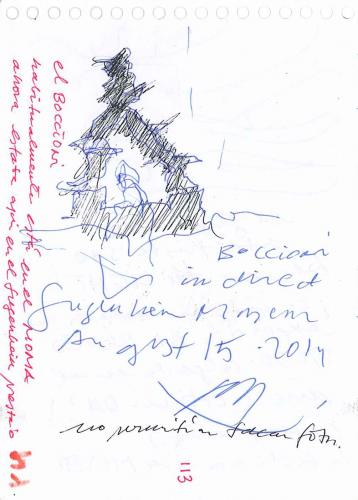 el Boccioni
habitualmente está en el MOMA
ahora estaba aquí en el Gugenheim prestado
Boccioni
in direct
Gugenheim Museum
August 15. 2014
no permitían sacar foto.
113